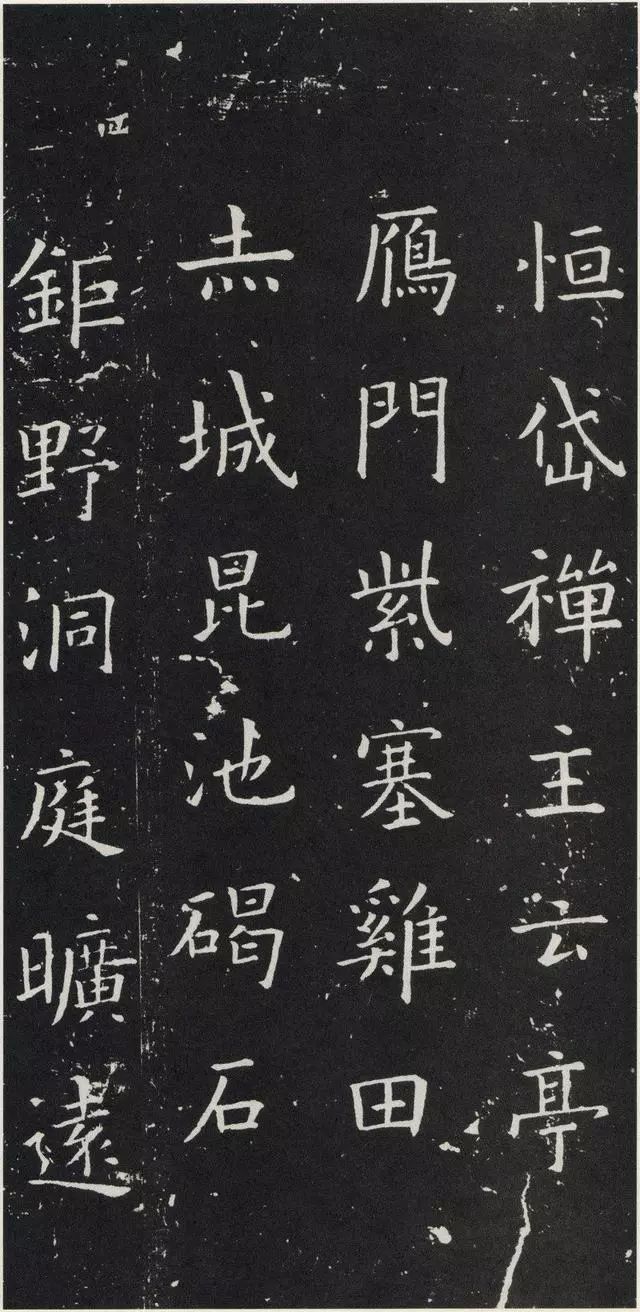 恒岱禪主云亭
鴈門紫塞雞田
赤城昆池碣石
鉅野洞庭曠遠
四